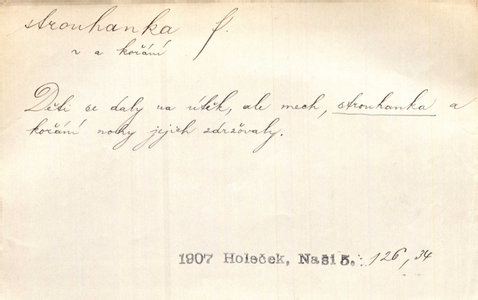 strouhanka f.
v a koření
Děti se daly na útěk, ale mech, strouhanka a
koření nohy jejich zdržovaly.
1907 Holeček, Naši 5. 126, 34